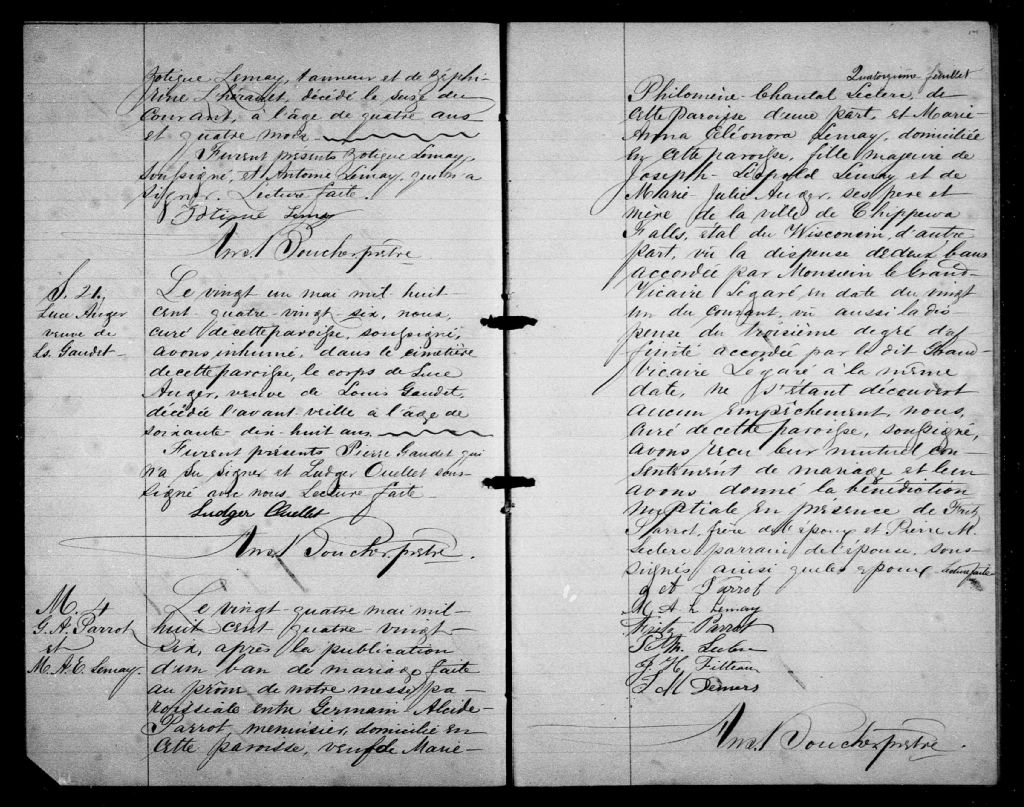 Zotique Lemay, tanneur et de Zéphi-
rine Lhérault, décédé le seize du
courant, à l'âge de quatre ans
et quatre mois.
Furent présents Zotique Lemay,
soussigné, et Antoine Lemay, qui n'a
signer. Lecture faite.
Zotique Lemay
Ans. Boucher ptre
S. 21.
Luce Auger
veuve de
Ls. Gaudet
Le vingt un mai mil huit
cent quatre-vingt-six, nous,
curé de cette paroisse, soussigné,
avons inhumé, dans le cimetière
de cette paroisse, le corps de Luce
Auger, veuve de Louis Gaudet,
décédée l'avant-veille à l'âge de
soixante-dix-huit ans.
Furent présents Pierre Gaudet qui
n'a su signer et Ludger Ouellet sous-
signé avec nous. Lecture faite
Ludger Ouellet
Ans. Boucher ptre.
M. 4
G. A. Parrot
et
M. A. E. Lemay.
Le vingt-quatre mai mil-
huit cent quatre-vingt-
six, après la publication
d'un ban de mariage faite
au prône de notre messe pa-
roissiale entre Germain Alcide
Parrot, menuisier, domicilié en
cette paroisse, veuf de Marie-
Quatorzième feuillet
Philomène-Chantal Leclerc, de
cette paroisse d'une part, et Marie-
Anna Eléonora Lemay, domiciliée
en cette paroisse, fille majeure de
Joseph-Léopold Lemay et de
Marie-Julie Auger, ses père et
mère de la ville de Chippewa
Falls, état du Wisconsin, d'autre
part, vu la dispense de deux bans
accordée par Monsieur le Grand-
Vicaire Legaré en date du vingt
un du courant, vu aussi la dis-
pense du troisième degré d'af
finité accordée par le dit Grand-
vicaire Légaré à la même
date, ne s'étant découvert
aucun empêchement, nous,
curé de cette paroisse, soussigné,
avons reçu leur mutuel con-
sentement de mariage et leur
avons donné la bénédiction
nuptiale en présence de Fritz
Parrot, frère de l'époux et Pierre M.
Leclerc parrain de l'épouse, sous-
signés ainsi que les époux. Lecture faite
Parrot
M. A. E. Lemay
Fritz Parrot
P. M. Leclerc
J. H. Filteau
J M Demers
Ans. Boucher ptre.